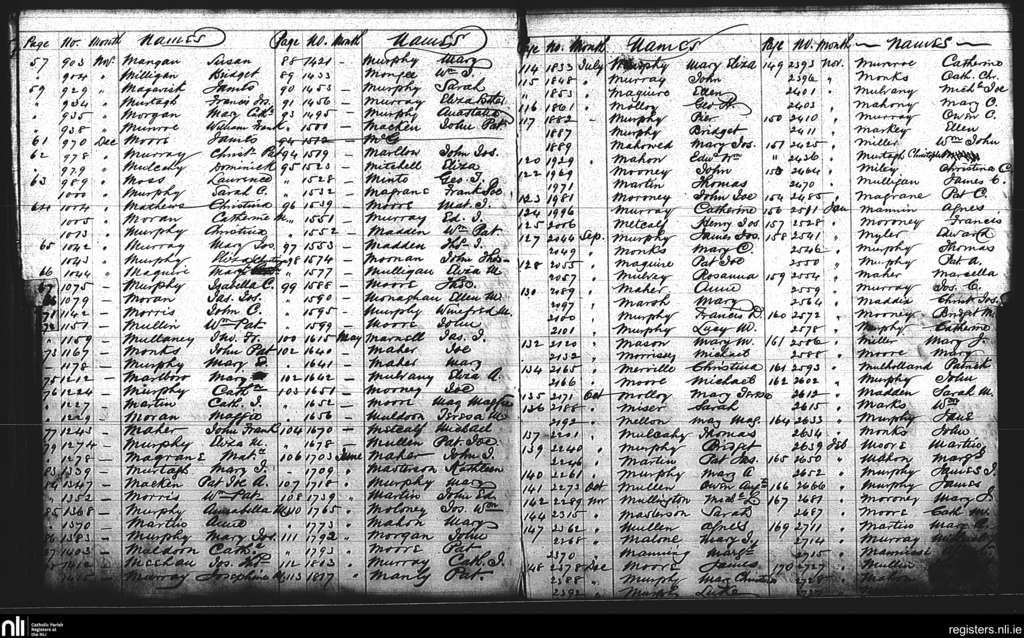 Page No. Month Names
57 903 Nov. Mangan Susan
" 904 " Milligan Bridget
59 929 " Magarick James
" 934 " Murtagh Francis Jos.
" 935 " Morgan Mary Cath.
" 938 " Munroe William Frank
61 970 Dec Moore James
62 978 " Murray Christ. Pat
" 979 " Mulcahy Dominick
63 989 " Moss Laurence
" 1000 " Murphy Sarah C.
64 1004 " Mathews Christina
" 1005 " Moran Catherine M.
" 1013 " Murphy Christina
65 1042 " Murray Mary Jos.
" 1043 " Murphy Elizabeth
66 1044 " Maguire Mary
67 1075 Murphy Isabella C.
1079 — Moran Jas. Jos.
71 1142 — Morris John C.
1151 — Mullin Wm Pat.
1159 — Mullaney Jno. Fr.
73 1167 — Monks John Pat
1178 — Murphy Mary
75 1212 — Marlow Mary
76 1224 — Murphy Cath
— Martin Cath. J.
1229 — Moran Maggie
77 1243 — Maher John Frank
79 1274 — Murphy Eliza M.
1278 — Magrane Mat.
83 1339 — Murtagh Mary J.
84 1347 — Macken Pat Joe A.
1352 — Morris Wm Pat.
85 1368 — Murphy Annabella M.
1370 — Martin Anne
86 1383 — Murphy Mary Jos.
87 1403 — Muldoon Cath.
1412 — Meehan Jos.
Murray Josephine M.
Page No. Month Names
88 1421 — Murphy Mary
89 1433 Mongee Wm J.
90 1453 — Murphy Sarah
91 1456 — Murray Eliza
93 1495 — Murphy Anastatia
" 1500 — Macken John Pat
94 1512 — Mc
94 1519 — Marlton John Jos.
95 1523 — Mitchell Eliza
" 1528 — Minto Geo. J.
" 1532 — Magrane Frank Joe
96 1539 — Moore Mat. J.
" 1551 — Murray Ed. J.
" 1552 — Madden Wm Pat.
97 1553 — Madden J.
98 1574 — Moonan John Thos
" 1577 — Mulligan Eliza M.
99 1588 — Moore Thos.
" 1590 — Monaghan Ellen M.
" 1595 — Murphy Winefred M.
" 1599 — Moore John
100 1615 May Marnell Jas. J.
102 1640 — Maher Joe
" 1641 — Maher Mary
102 1642 — Mulvany Eliza A.
103 1650 — Mooney Joe
" 1652 — Moore Mag Maggie
" 1656 — Muldoon Teresa M.
104 1670 — Metcalf Michael
" 1678 — Mullen Pat Joe
106 1703 June Maher John J.
" 1709 " Masterson Kathleen
107 1718 " Murphy Mary
108 1739 " Martin John Ed.
110 1765 " Moloney Jos. Wm
" 1773 " Mahon Mary
111 1792 " Morgan John
" 1793 " Moore Pat
112 1813 " Murray Cath. J.
113 1817 " Manly Pat.
Page No. Month Names
114 1833 July Murphy Mary Eliza
115 1848 " Murray John
" 1853 " Maguire Ellen
116 1861 " Molloy Geo. H.
117 1882 — Murphy Pier
1887 Murphy Bridget
1889 Mahomed Mary Jos.
120 1929 " Mahon Edw. Wm
122 1969 " Mooney John
1971 " Martin Thomas
123 1981 " Mooney John Joe
124 1996 " Murray Catherine
125 2006 " Metcalf Henry Jos
127 2044 Sep. Murphy James Jos.
" 2049 " Monks Mary C.
128 2055 " Maguire Pat Joe
2057 " Mulvey Rosanna
130 2089 " Maher Anne
2097 " Marsh Mary
2100 " Murphy Francis R.
2101 " Murphy Lucy M.
132 2120 " Mason Mary M.
2132 " Morrissey Michael
134 2165 " Merville Christina
2166 " Moore Michael
135 2171 Oct Molloy Mary Teresa
136 2188 " Miser Sarah
2192 " Mellon Mary Mag.
137 2201 " Mulcahy Thomas
139 2240 " Murphy Bridget
2246 " Martin Pat Jas.
140 2261 " Murphy Mary A
141 2273 Oct Mullen Owen Aug
142 2289 Nov Mullington
144 2315 " Masterson Sarah
147 2362 " Mullen Agnes
2368 " Malone Mary J.
2370 " Manning Marg
148 2378 Dec Moore James
2388 " Murphy Mary Christina
2392 " Murphy Luke
Page No. Month — Names —
149 2393 Nov. Munroe Catherine
2396 " Monks Cath. Chr.
2401 " Mulvany Mich. Joe
2403 " Mahony Mary C.
150 2410 " Murray Owen C.
2411 " Markey Ellen
151 2425 " Miller Wm John
" 2436 " Murtagh Christopher
153 2464 " Miley Christina C
2470 " Mulligan James C.
154 2485 " Magrane Pat C.
156 2501 Jan Mannin Agnes
157 2528 " Mooney Francis
158 2541 " Myler Edward
2546 " Murphy Thomas
2550 " Murphy Pat. A.
159 2554 " Maher Marsella
2559 " Murray Jos. C.
2564 " Maddin Christ. Jos.
160 2572 " Mooney Bridget M.
2578 " Murphy Catherine
161 2586 " Miller Mary J.
2588 " Moore Mary
161 2593 " Mulholland Patrick
162 2602 " Murphy John
2612 " Madden Sarah M.
2615 " Marks Wm
164 2633 " Murphy Jane
2634 " Monks John
2639 Feb Moore Martin
165 2650 " Mahon Marg
2652 " Murphy James J.
166 2666 " Murphy James
167 2681 " Mooney Mary J.
2687 " Moore Cath. M.
169 2711 " Martin Mary C.
2714 " Murray
2715 " Mannissi
170 2727 " Mullin
2728 " Mahon
nli
Catholic Parish
Registers at
the NLI
registers.nli.ie